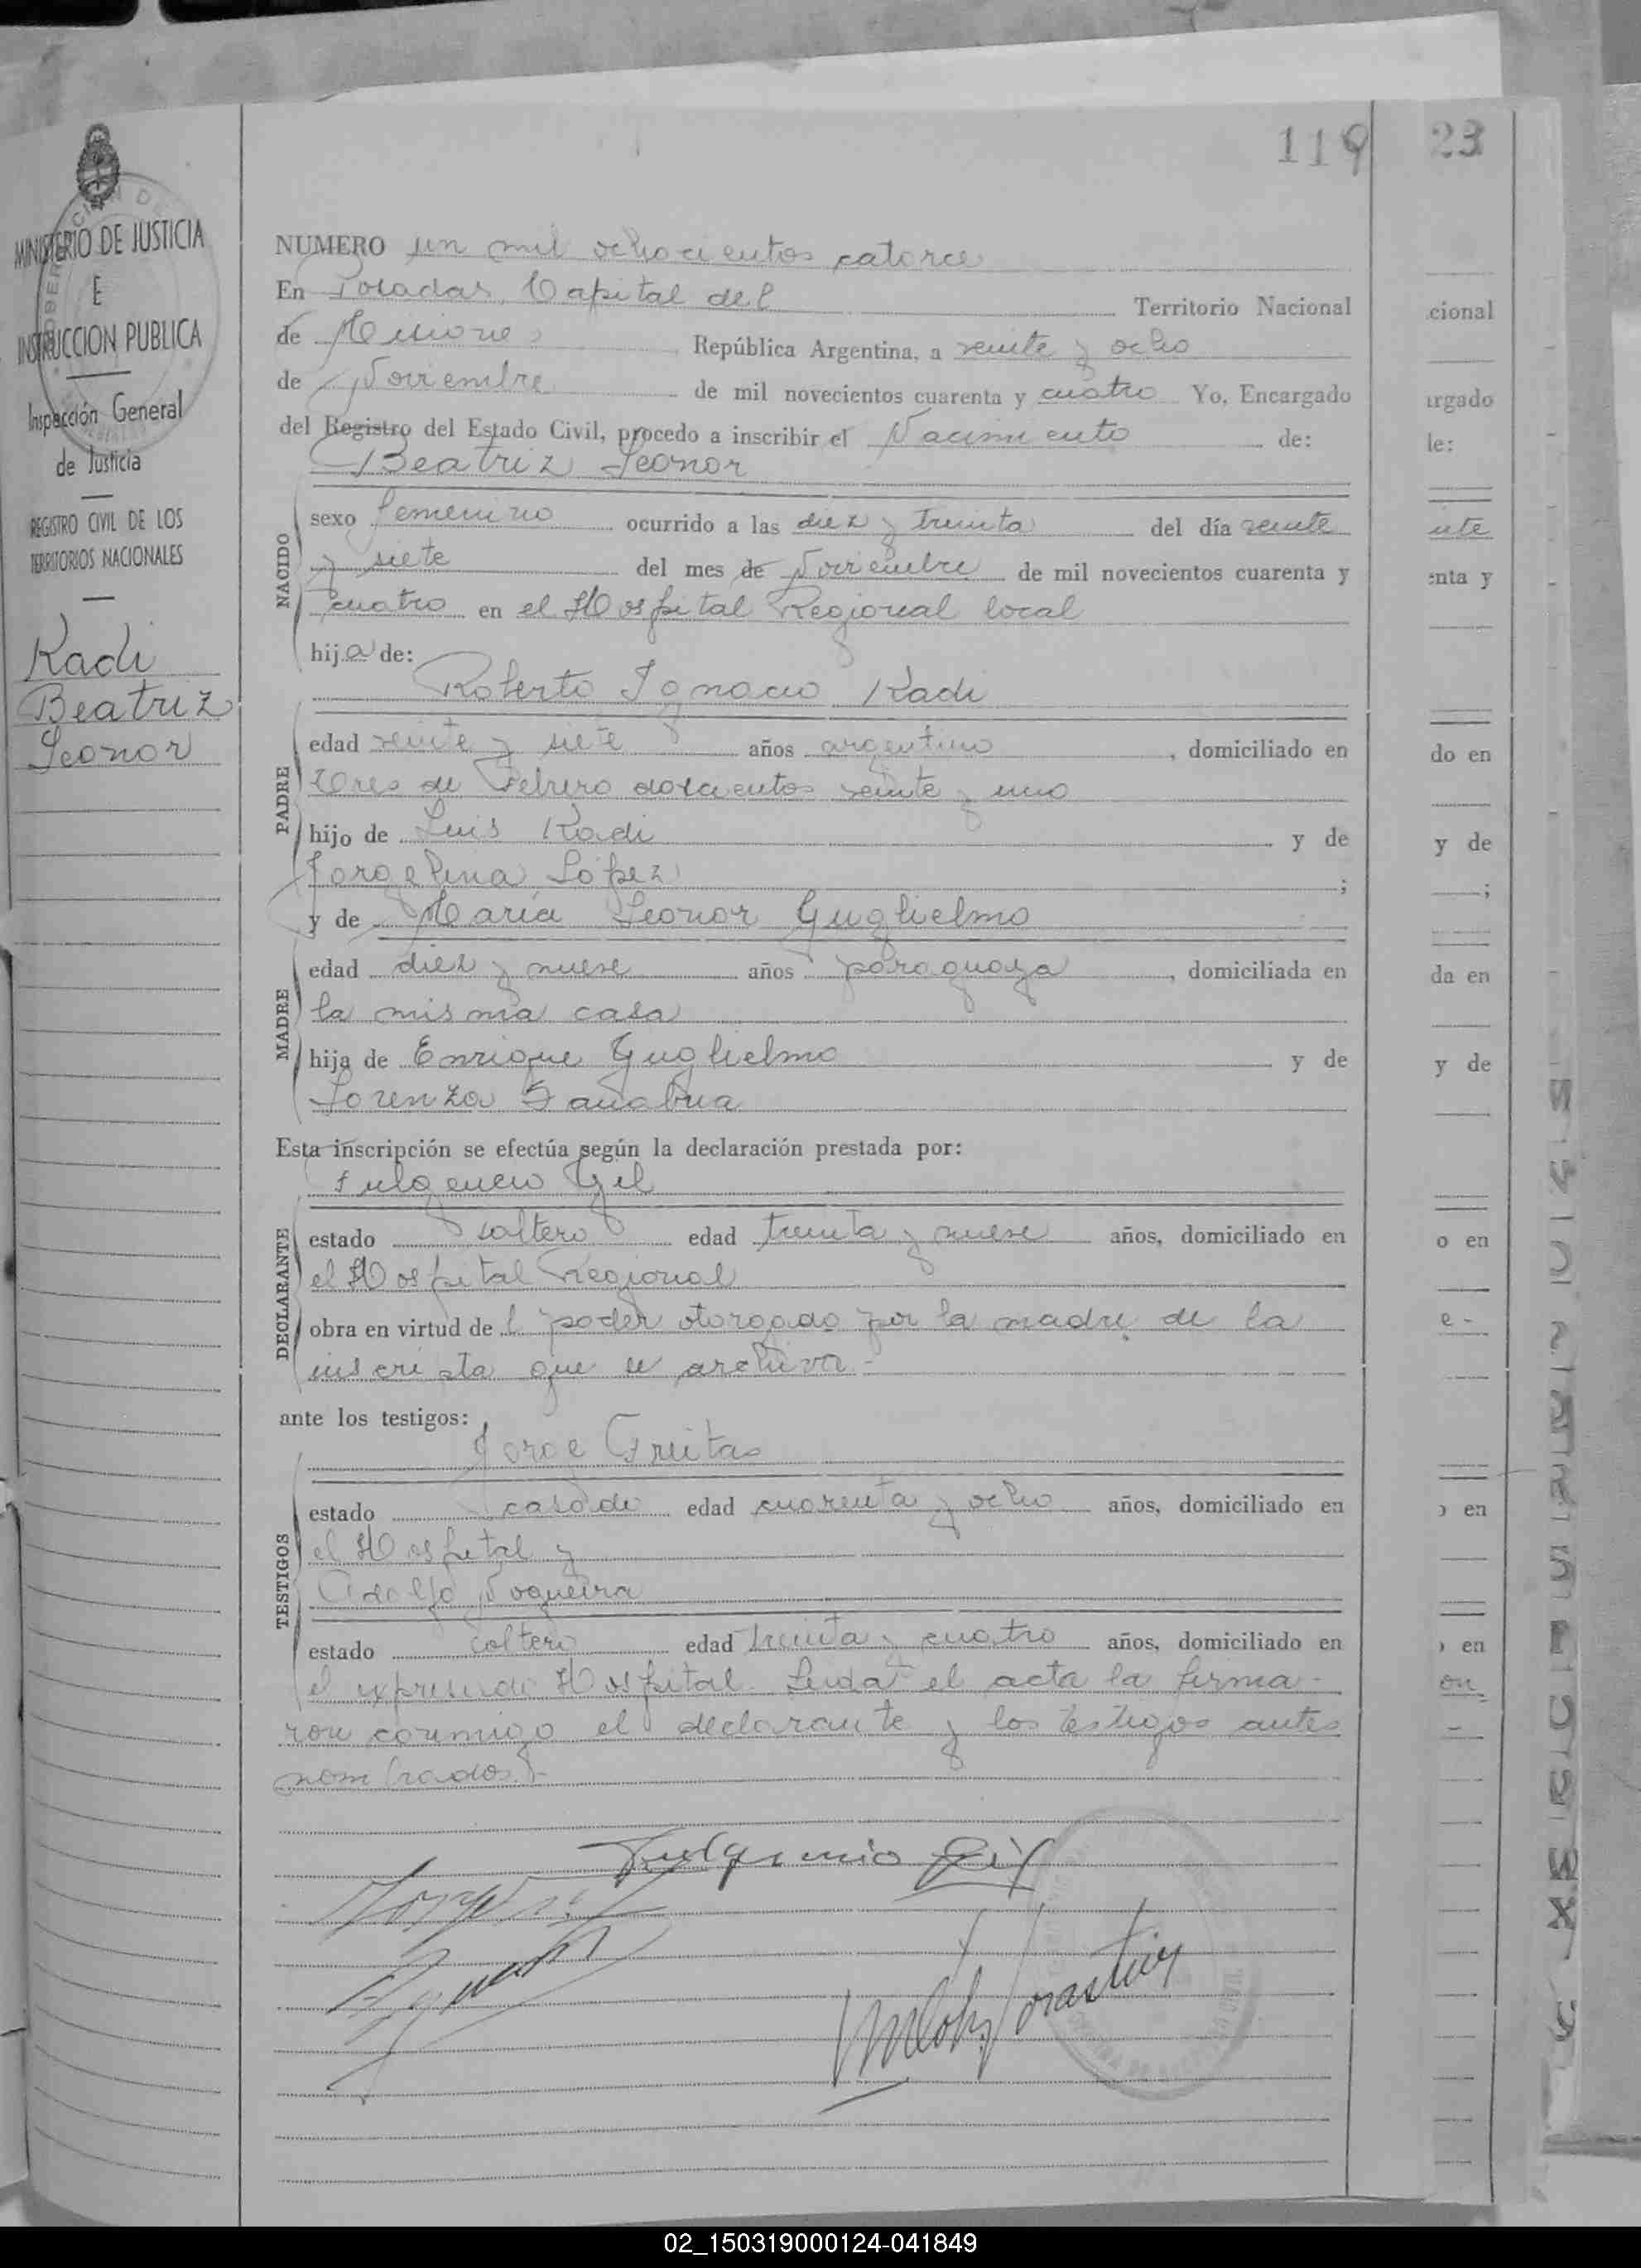 119
23
MINISTERIO DE JUSTICIA
E
INSTRUCCION PUBLICA
Inspección General
de Justicia
REGISTRO CIVIL DE LOS
TERRITORIOS NACIONALES
Kadi
Beatriz
Leonor
NUMERO un mil ochocientos catorce
En Posadas, Capital del Territorio Nacional
de Misiones República Argentina, a veinte y ocho
de Noviembre de mil novecientos cuarenta y cuatro Yo, Encargado
del Registro del Estado Civil, procedo a inscribir el Nacimiento de:
Beatriz Leonor
NACIDO
sexo femenino ocurrido a las diez y treinta del día veinte
y siete del mes de Noviembre de mil novecientos cuarenta y
cuatro en el Hospital Regional local
hija de:
Roberto Ignacio Kadi
PADRE
edad veinte y siete años argentino, domiciliado en
Tres de Febrero doscientos veinte y uno
hijo de Luis Kadi y de
Jorgelina López;
y de María Leonor Guglielmo
MADRE
edad diez y nueve años paraguaya, domiciliada en
la misma casa
hija de Enrique Guglielmo y de
Lorenza Sanabria
Esta inscripción se efectúa según la declaración prestada por:
Fulgencio Gil
DECLARANTE
estado soltero edad treinta y nueve años, domiciliado en
el Hospital Regional
obra en virtud del poder otorgado por la madre de la
inscripta que se archiva.-
ante los testigos:
Jorge Freitas
TESTIGOS
estado casado edad cuarenta y ocho años, domiciliado en
el Hospital y
Adolfo Nogueira
estado soltero edad treinta y cuatro años, domiciliado en
el expresado Hospital. Leida el acta la firma-
ron conmigo el declarante y los testigos antes
nombrados.-
Fulgencio Gil
cional
urgado
le:
inte
enta y
do en
y de
;
da en
y de
o en
e -
o en
en
on
02_150319000124-041849